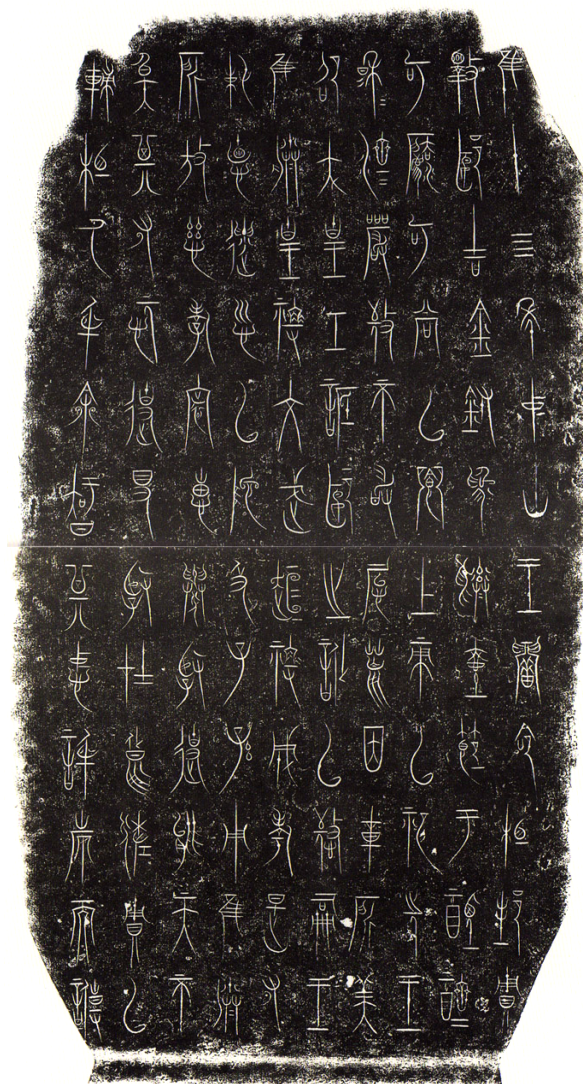 隹十四年中山王嚳命相邦賙
擇郾吉金鑄為彝壺節于禋醑
可灋可尚以鄉上帝以祀先王
穆=濟=嚴敬不敢怠荒因載所美
卲大皇工詆郾之訛以憼嗣王
隹朕皇祖文武桓祖成考是又
純德遺訓以陀及子孫用隹朕
所放慈孝寰惠舉賢使能天不
臭其又忨使得賢在良佐賙以
輔相厥身余智其忠信也而專